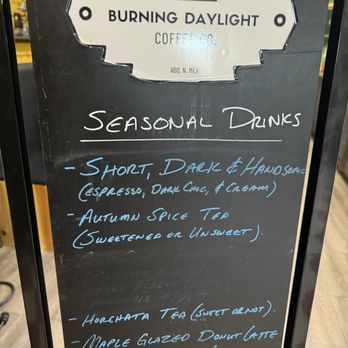 BURNING DAYLIGHT
COFFEE CO.
ABQ, N. MEX
SEASONAL DRINKS
- SHORT, DARK & HANDSOME
(ESPRESSO, DARK CHOC, & CREAM)
- AUTUMN SPICE TEA
(SWEETENED OR UNSWEET).
- HORCHATA TEA (SWEET OR NOT).
- MAPLE GLAZED DONUT LATTE